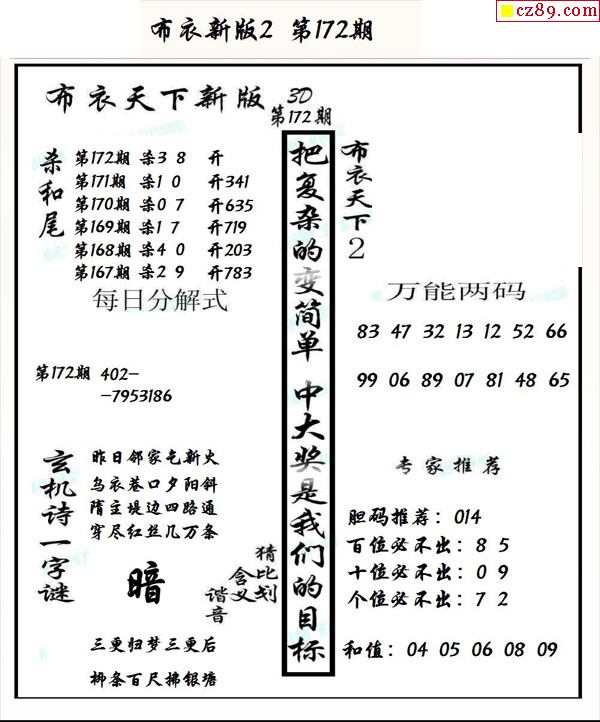 cz89.com
布衣新版2 第172期
布衣天下新版 3D
第172期
杀和尾
第172期 杀3 8 开
第171期 杀1 0 开341
第170期 杀0 7 开635
第169期 杀1 7 开719
第168期 杀4 0 开203
第167期 杀2 9 开783
每日分解式
第172期 402-
-7953186
玄机诗一字谜
昨日邻家乞新火
乌衣巷口夕阳斜
隋主堤边四路通
穿尽红丝几万条
暗
猜比划
含义
谐音
三更归梦三更后
柳条百尺拂银塘
把复杂的变简单 中大奖是我们的目标
布衣天下2
万能两码
83 47 32 13 12 52 66
99 06 89 07 81 48 65
专家推荐
胆码推荐：014
百位必不出：8 5
十位必不出：0 9
个位必不出：7 2
和值：04 05 06 08 09